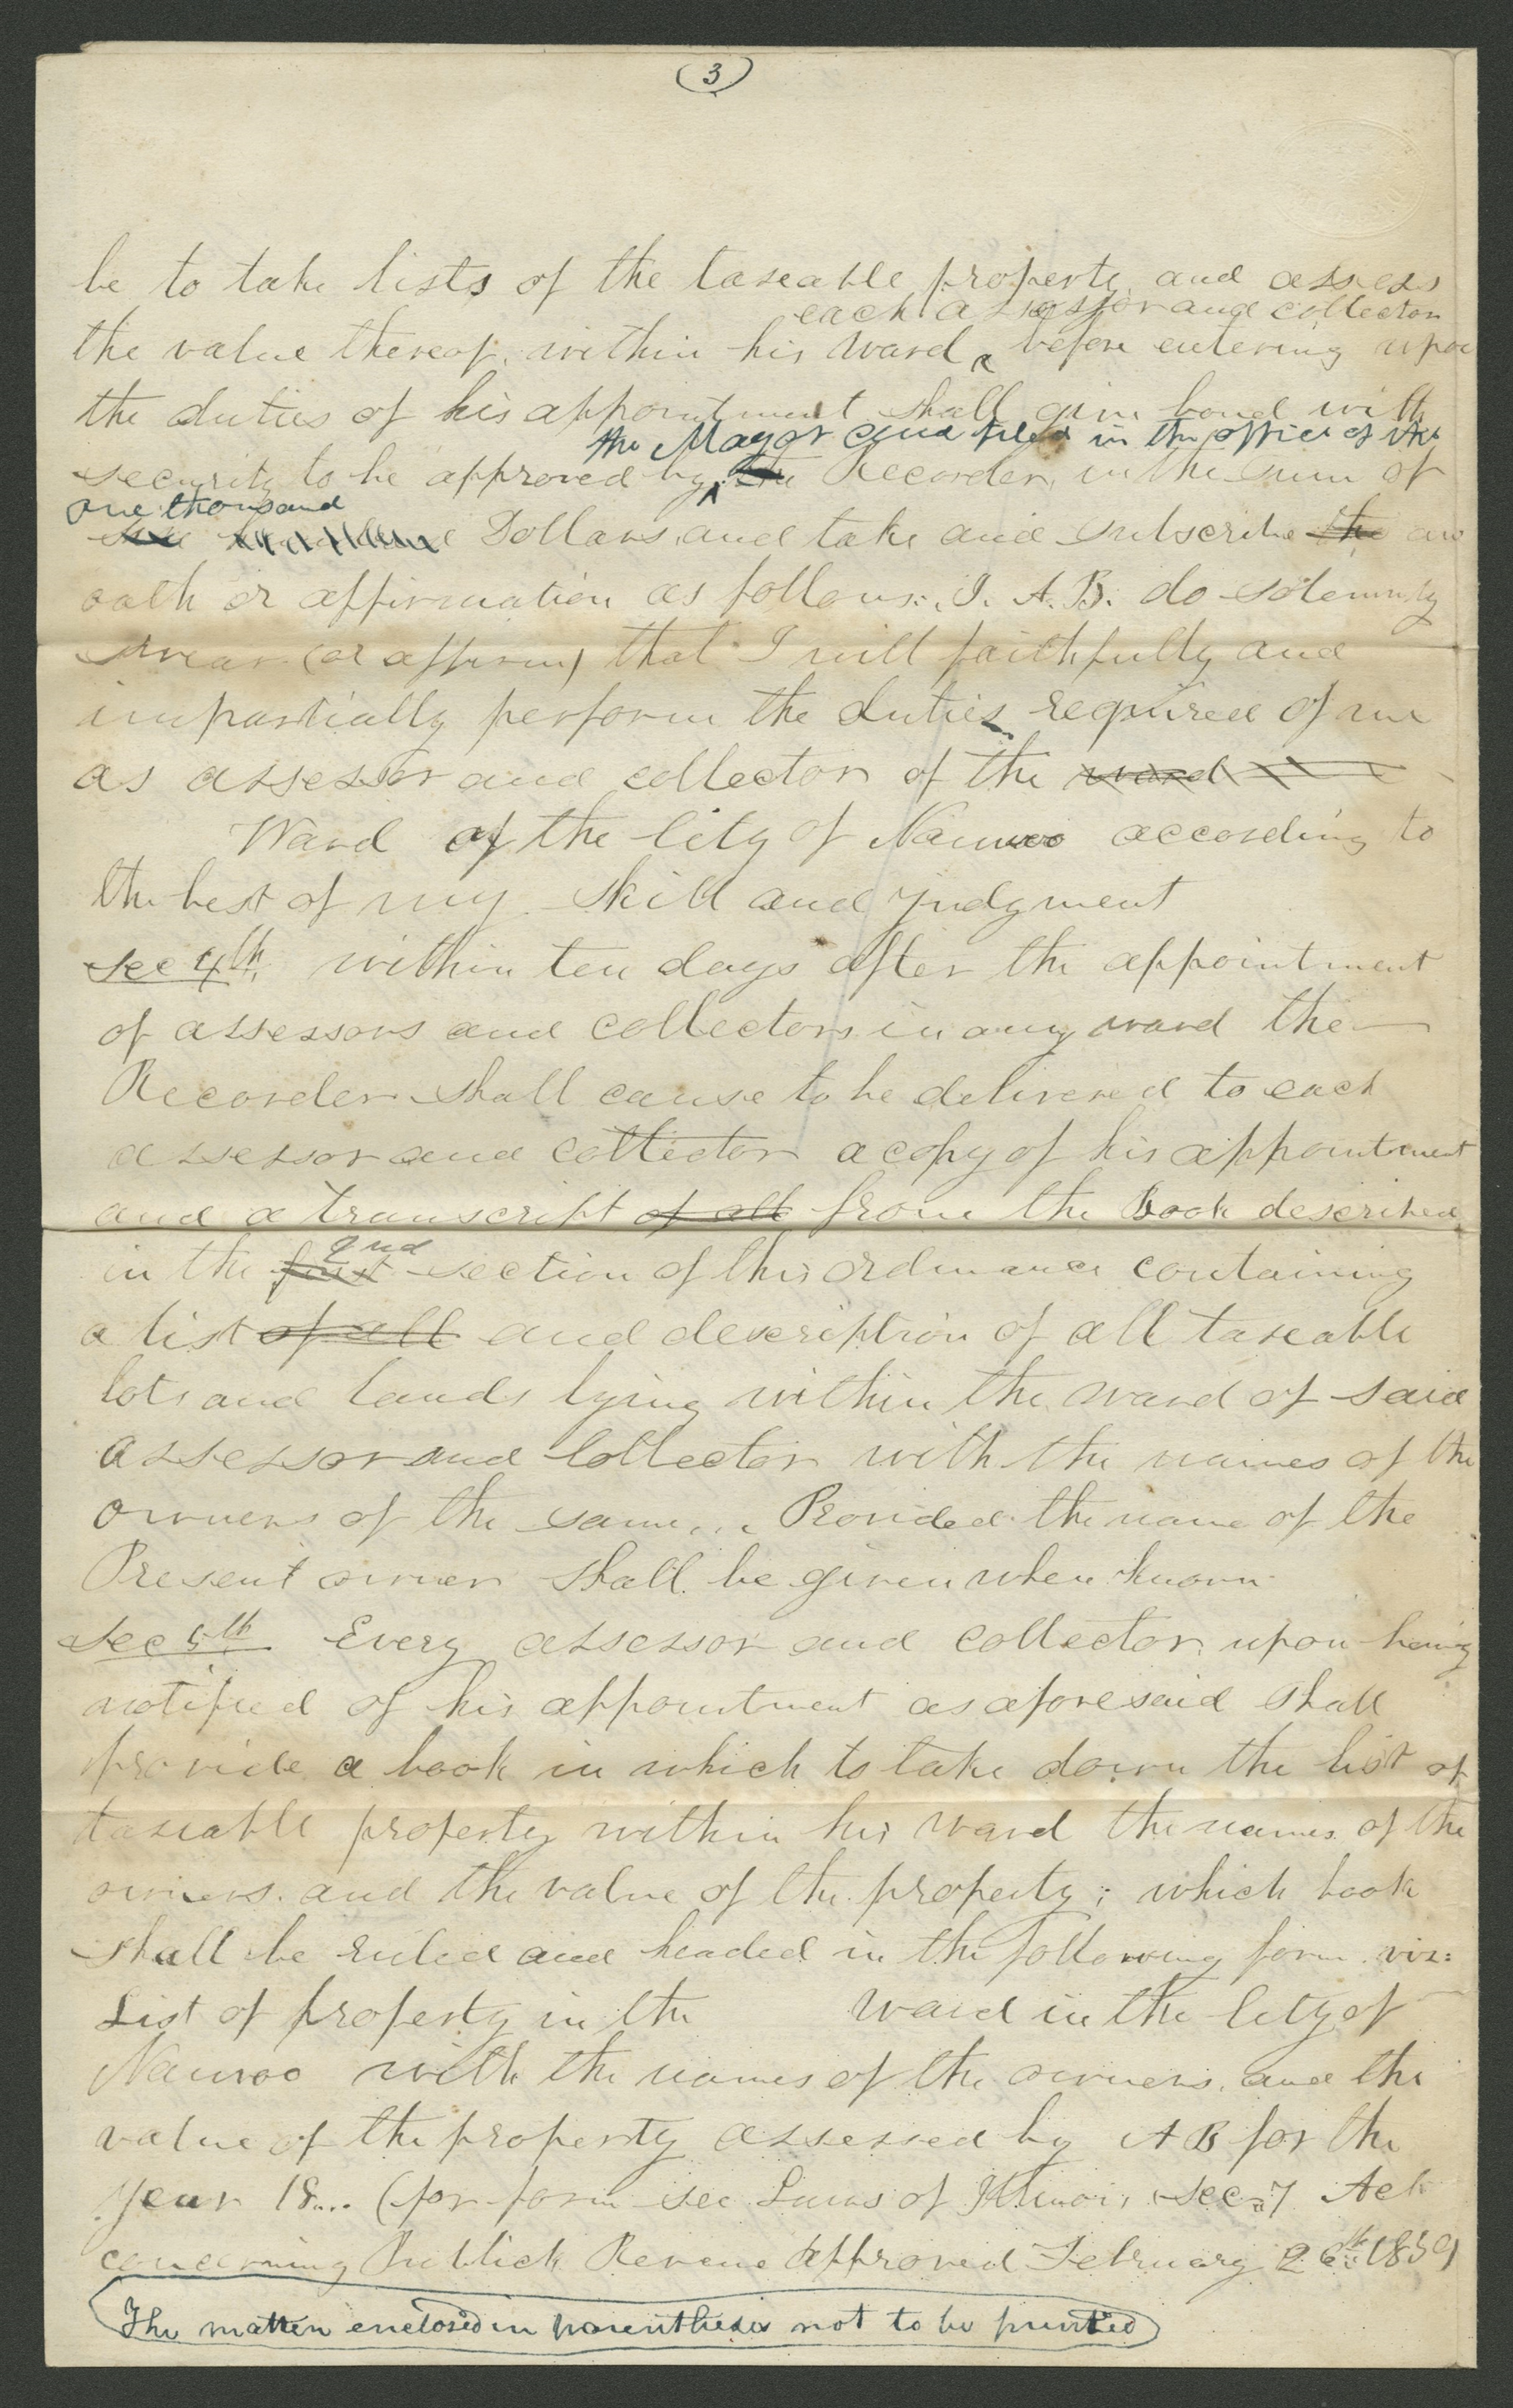 (3)
be to take lists of the taxeable property and assess
each assessor and collector
the value thereof, within his Ward ‸ before entering upon
the duties of his appointment shall give bond with
the Mayor and filed in the office of the
security to be approved by ‸ the Recorder, in the sum of
one thousand
Dollars, and take and subscribe the an
oath or affirmation as follows:, I. A. B. do solemnly
swear (or affirm) that I will faithfully and
impartially perform the duties required of me
as assessor and collector of the ward
Ward of the City of Nauvoo according to
the best of my skill and judgment
Sec 4th. within ten days after the appointment
of assessors and collectors in any ward the
Recorder shall cause to be delivered to each
assessor and collector a copy of his appointment
and a transcript of all from the Book described
2nd
in the first section of this ordinance containing
a list of all and description of all taxeable
lots and lands lying within the ward of said
assessor and Collector with the names of the
owners of the same... Provided the name of the
Present owner shall be given when known
Sec 5th Every assessor and collector upon being
notified of his appointment as aforesaid shall
provide a book in which to take down the list of
taxeable property within his ward the names of the
owners. and the value of the property; which book
shall be ruled and headed in the following form viz:
List of property in the Ward in the City of
Nauvoo with the names of the owners, and the
value of the property assessed by A B for the
year 18.... (for form see Laws of Illinois, sec. 7 Act
concerning Publick Revenue approved February 26th 1839
The matter enclosed in parenthesis not to be printed